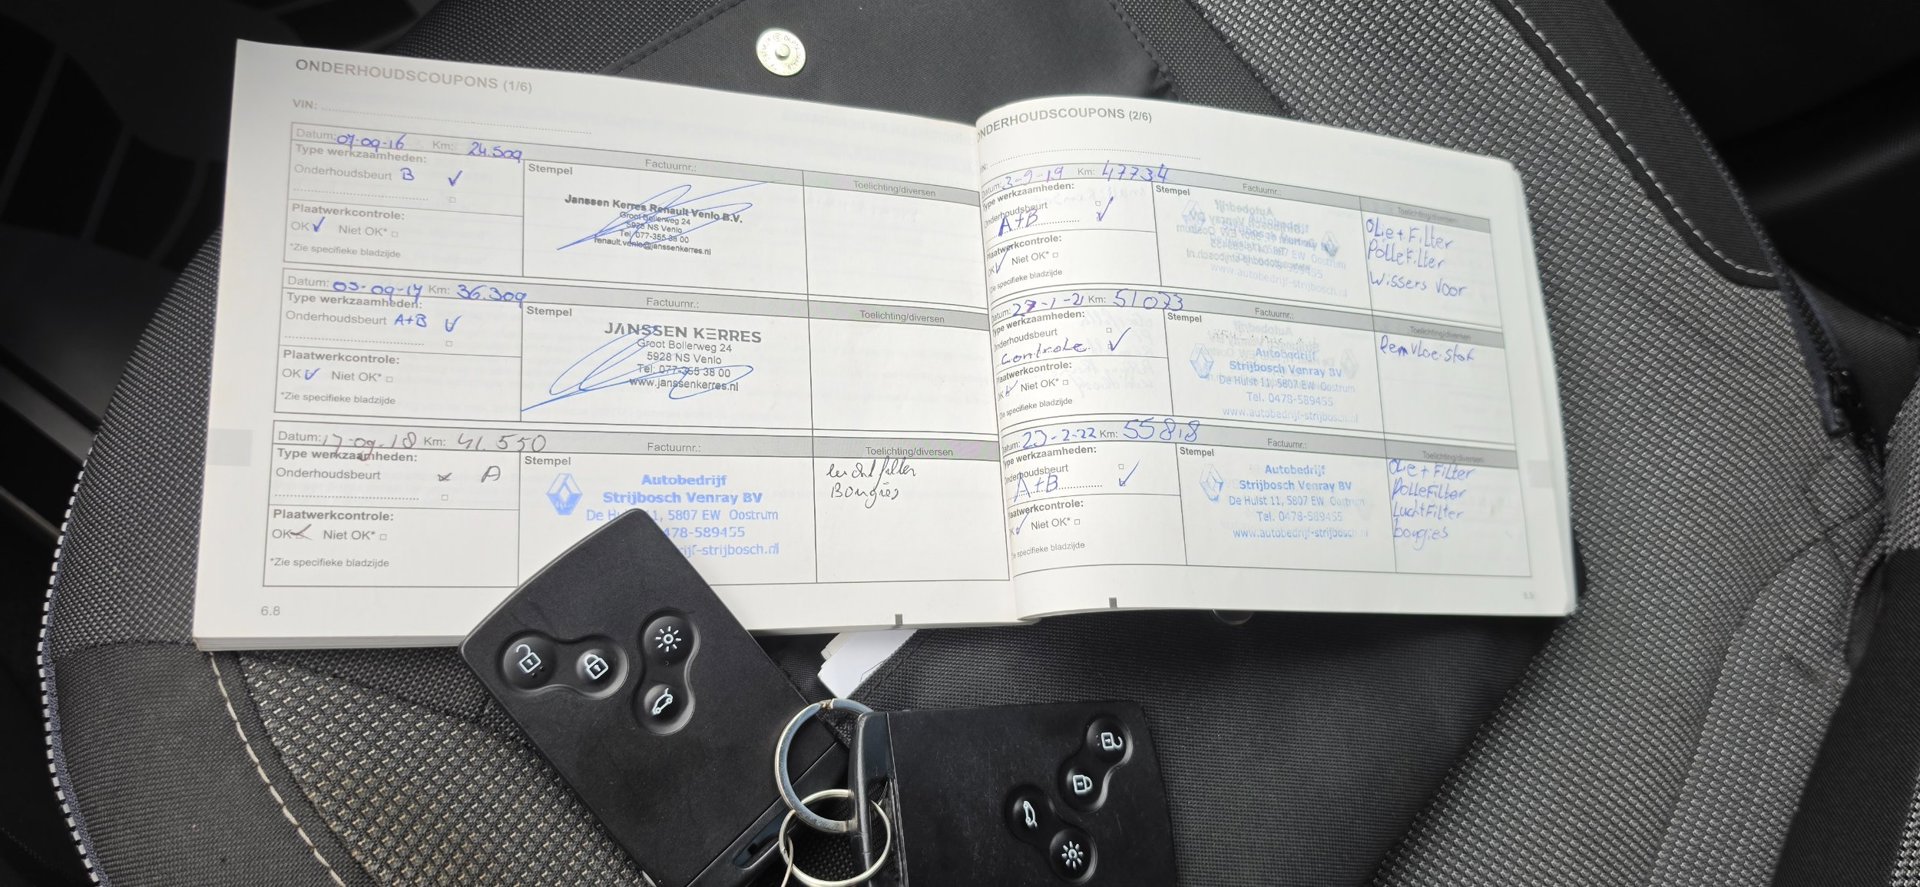 ONDERHOUDSCOUPONS (1/6)
VIN:
Datum: 07-09-16 Km: 24.509
Type werkzaamheden:
Onderhoudsbeurt B
Plaatwerkcontrole:
OK Niet OK*
*Zie specifieke bladzijde
Stempel
Factuurnr.:
Janssen Kerres Renault Venlo B.V.
Groot Bollerweg 24
5928 NS Venlo
Tel. 077-355 38 00
renault.venlo@janssenkerres.nl
Toelichting/diversen
Datum: 05-09-17 Km: 36.309
Type werkzaamheden:
Onderhoudsbeurt A+B
Plaatwerkcontrole:
OK Niet OK*
*Zie specifieke bladzijde
Stempel
Factuurnr.:
JANSSEN KERRES
Groot Bollerweg 24
5928 NS Venlo
Tel: 077-355 38 00
www.janssenkerres.nl
Toelichting/diversen
Datum: 17-09-18 Km: 41.550
Type werkzaamheden:
Onderhoudsbeurt A
Plaatwerkcontrole:
OK Niet OK*
*Zie specifieke bladzijde
Stempel
Factuurnr.:
Autobedrijf
Strijbosch Venray BV
De Hulst 11, 5807 EW Oostrum
0478-589455
-strijbosch.nl
Toelichting/diversen
luchtfilter
Bougies
6.8
NDERHOUDSCOUPONS (2/6)
Datum: 3-9-19 Km: 47734
Type werkzaamheden:
Onderhoudsbeurt
A+B
Plaatwerkcontrole:
OK Niet OK*
Zie specifieke bladzijde
Stempel
Factuurnr.:
Toelichting/diversen
Olie + Filter
PolleFilter
Wissers voor
Datum: 27-1-21 Km: 51073
Type werkzaamheden:
Onderhoudsbeurt
Controle
Plaatwerkcontrole:
OK Niet OK*
Zie specifieke bladzijde
Stempel
Factuurnr.:
Autobedrijf
Strijbosch Venray BV
De Hulst 11, 5807 EW Oostrum
Tel. 0478-589455
www.autobedrijf-strijbosch.nl
Toelichting/diversen
Remvloeistof
Datum: 23-2-22 Km: 55818
Type werkzaamheden:
Onderhoudsbeurt
A+B
Plaatwerkcontrole:
OK Niet OK*
*Zie specifieke bladzijde
Stempel
Factuurnr.:
Autobedrijf
Strijbosch Venray BV
De Hulst 11, 5807 EW Oostrum
Tel. 0478-589455
www.autobedrijf-strijbosch.nl
Toelichting/diversen
Olie + Filter
PolleFilter
LuchtFilter
bougies